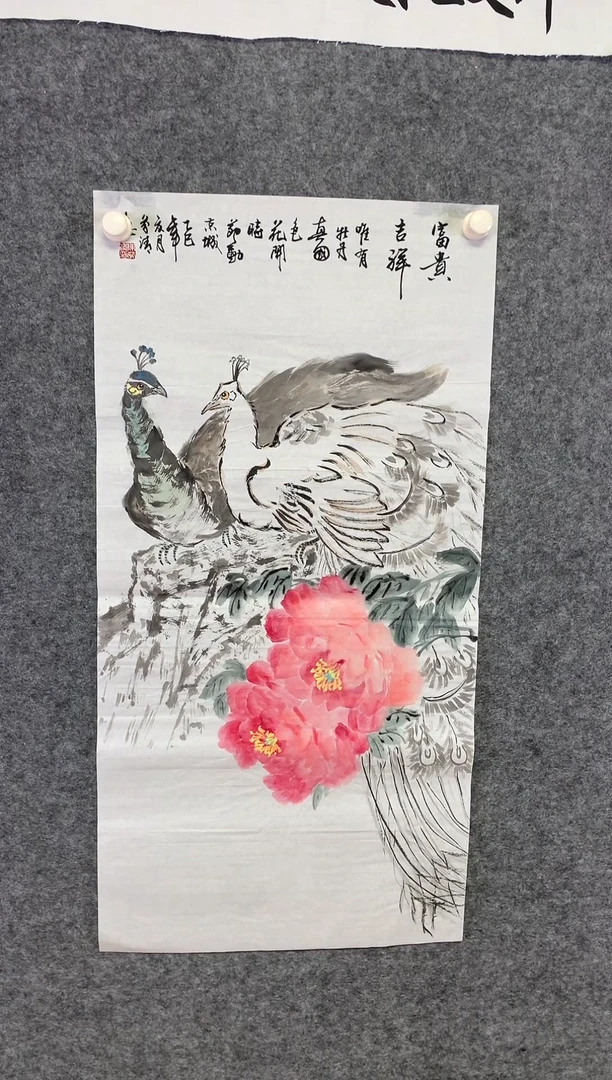 富貴
吉祥
唯有
牡丹
真國
色
花開
時
節動
京城
乙巳
年
月